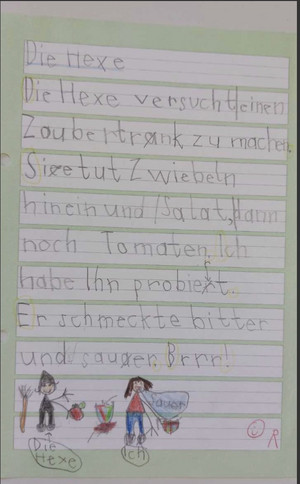 Die Hexe
Die Hexe versucht einen
Zaubertrank zu machen.
Sie tut Zwiebeln
hinein und Salat, dann
noch Tomaten. Ich
habe Ihn probiert.
Er schmeckte bitter
und sauer. Brrr!
Sauer
Die
Hexe
Ich
© R